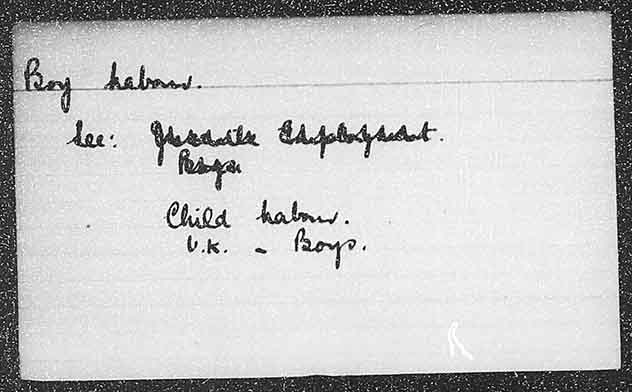 Boy Labour.
See: Juvenile Employment.
Boys
Child Labour.
U.K. - Boys.